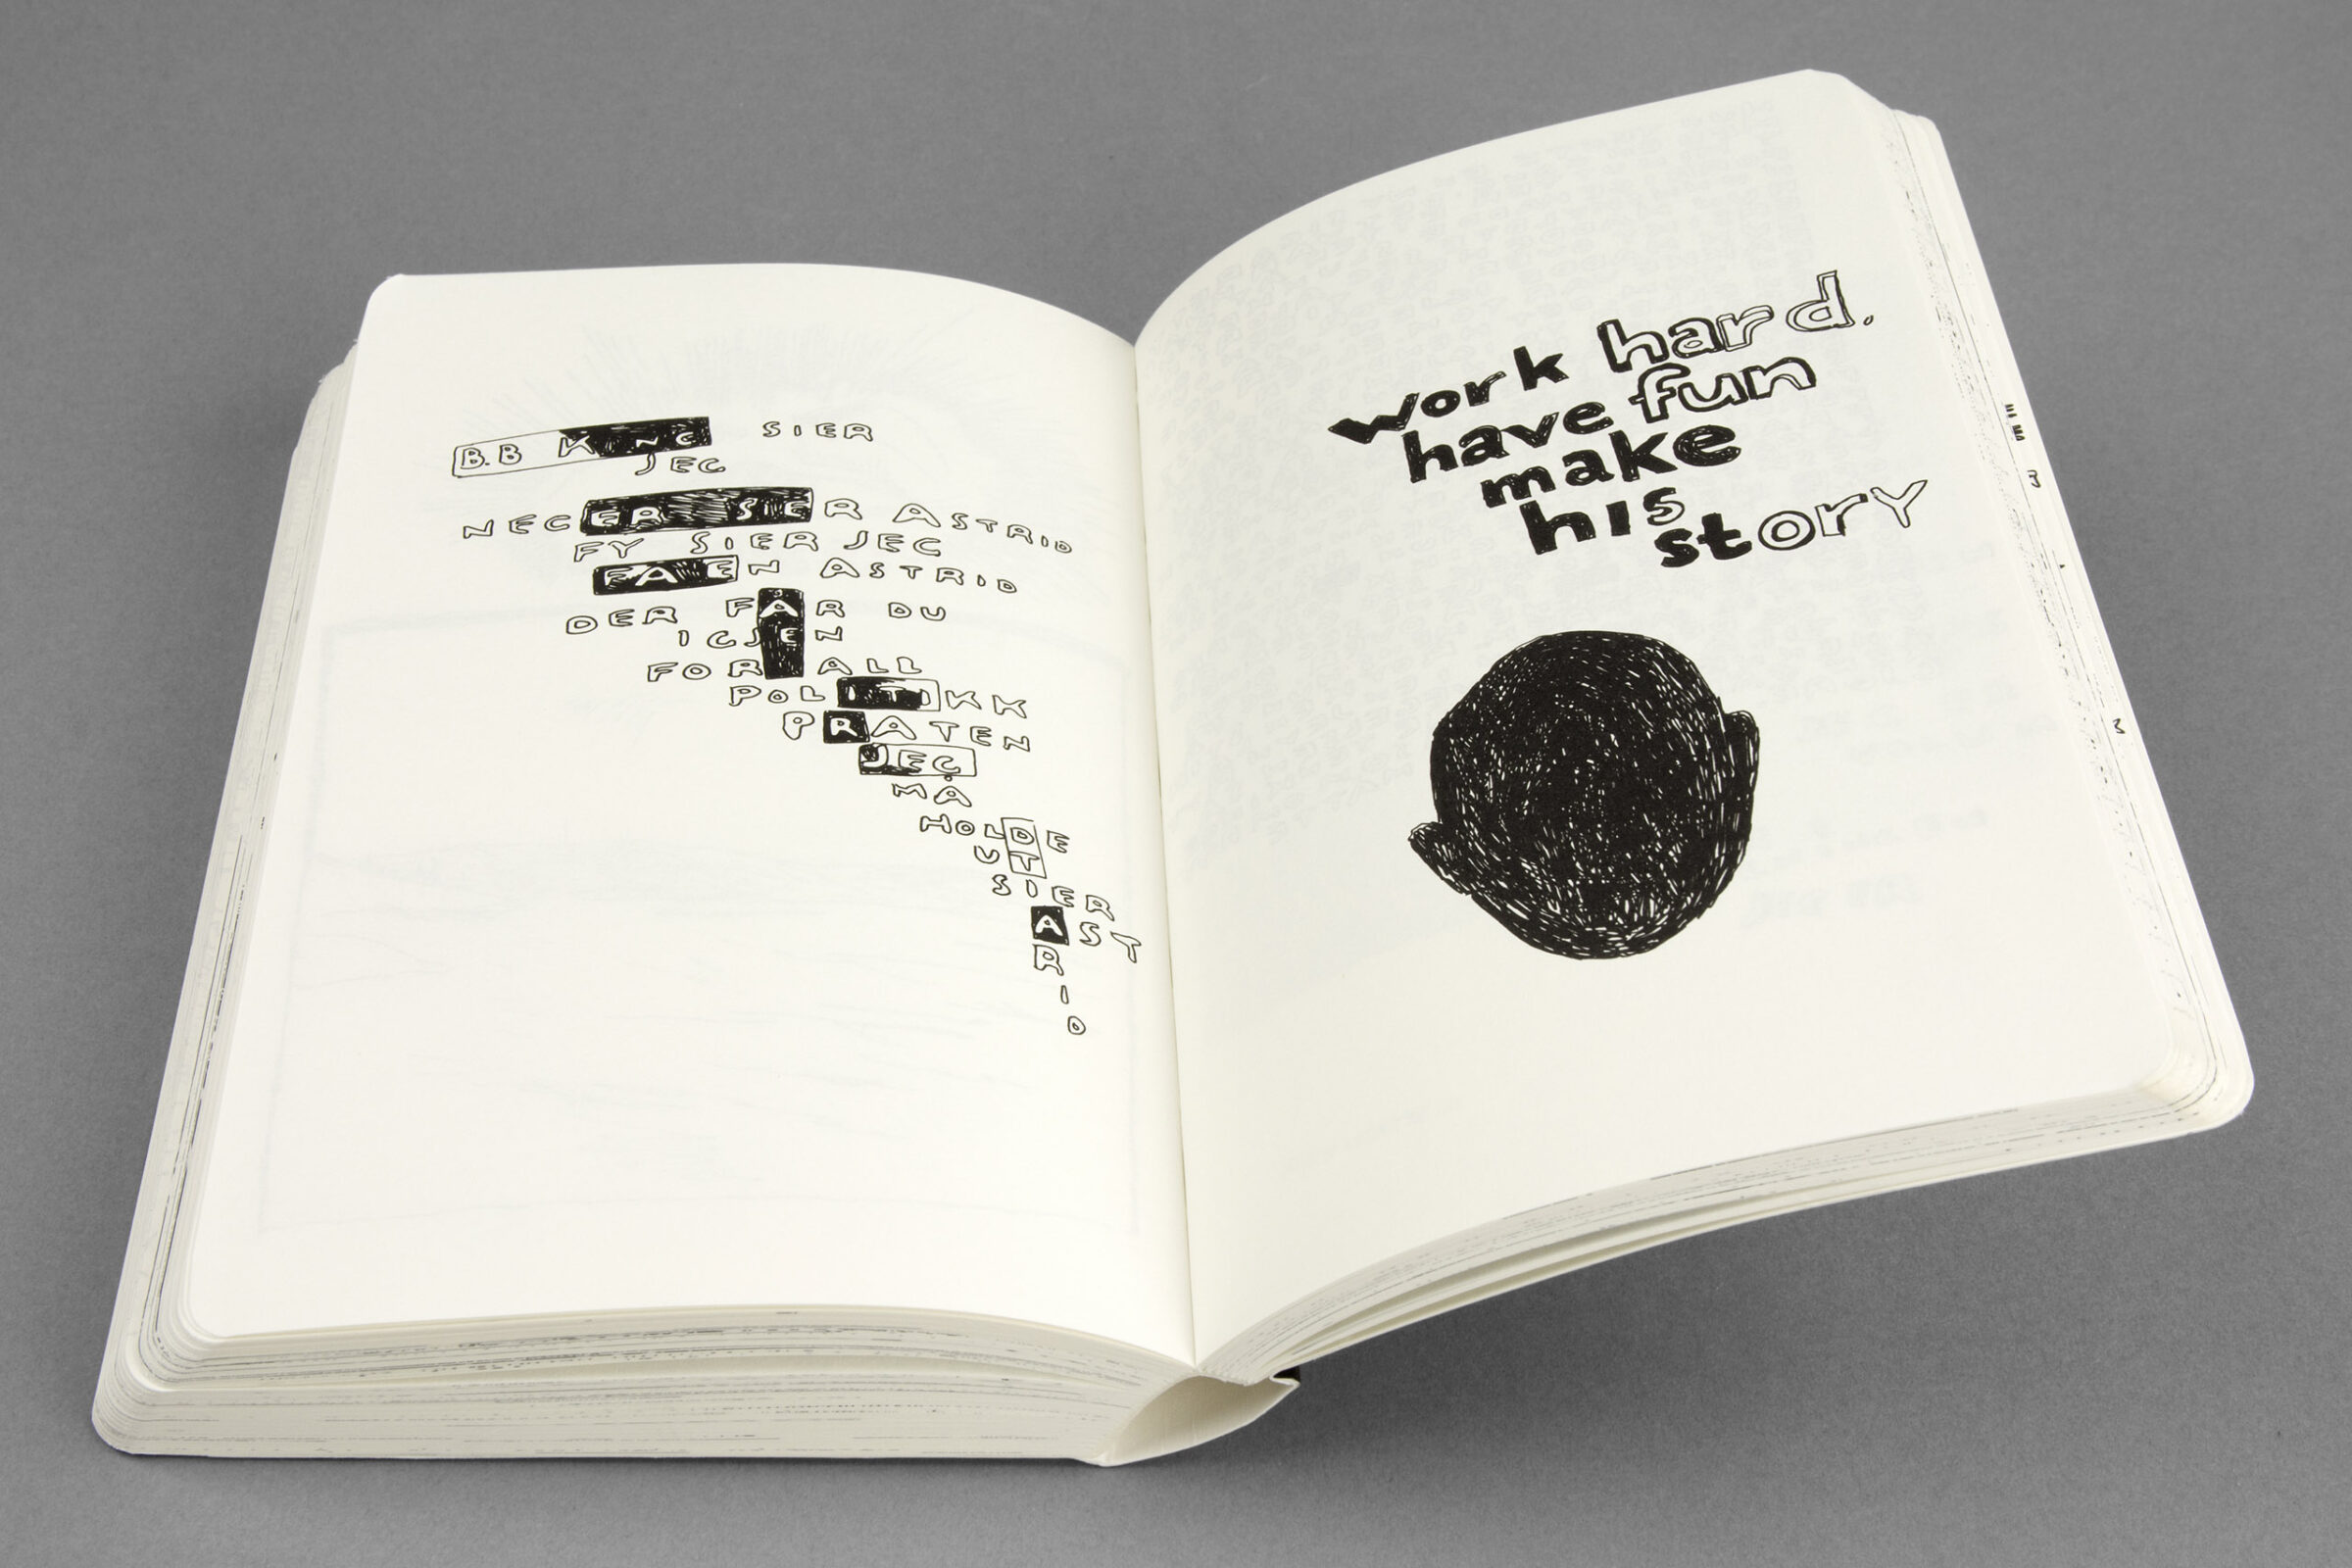 B.B KING SIER
JEG
NEGER SIER ASTRID
FY SIER JEG
FAEN ASTRID
DER FÅR DU
IGJEN
FOR ALL
POLITIKK
PRATEN
JEG
MÅ
HOLDE
UT
SIER
AST
R
I
D
work hard.
have fun
make
his
story